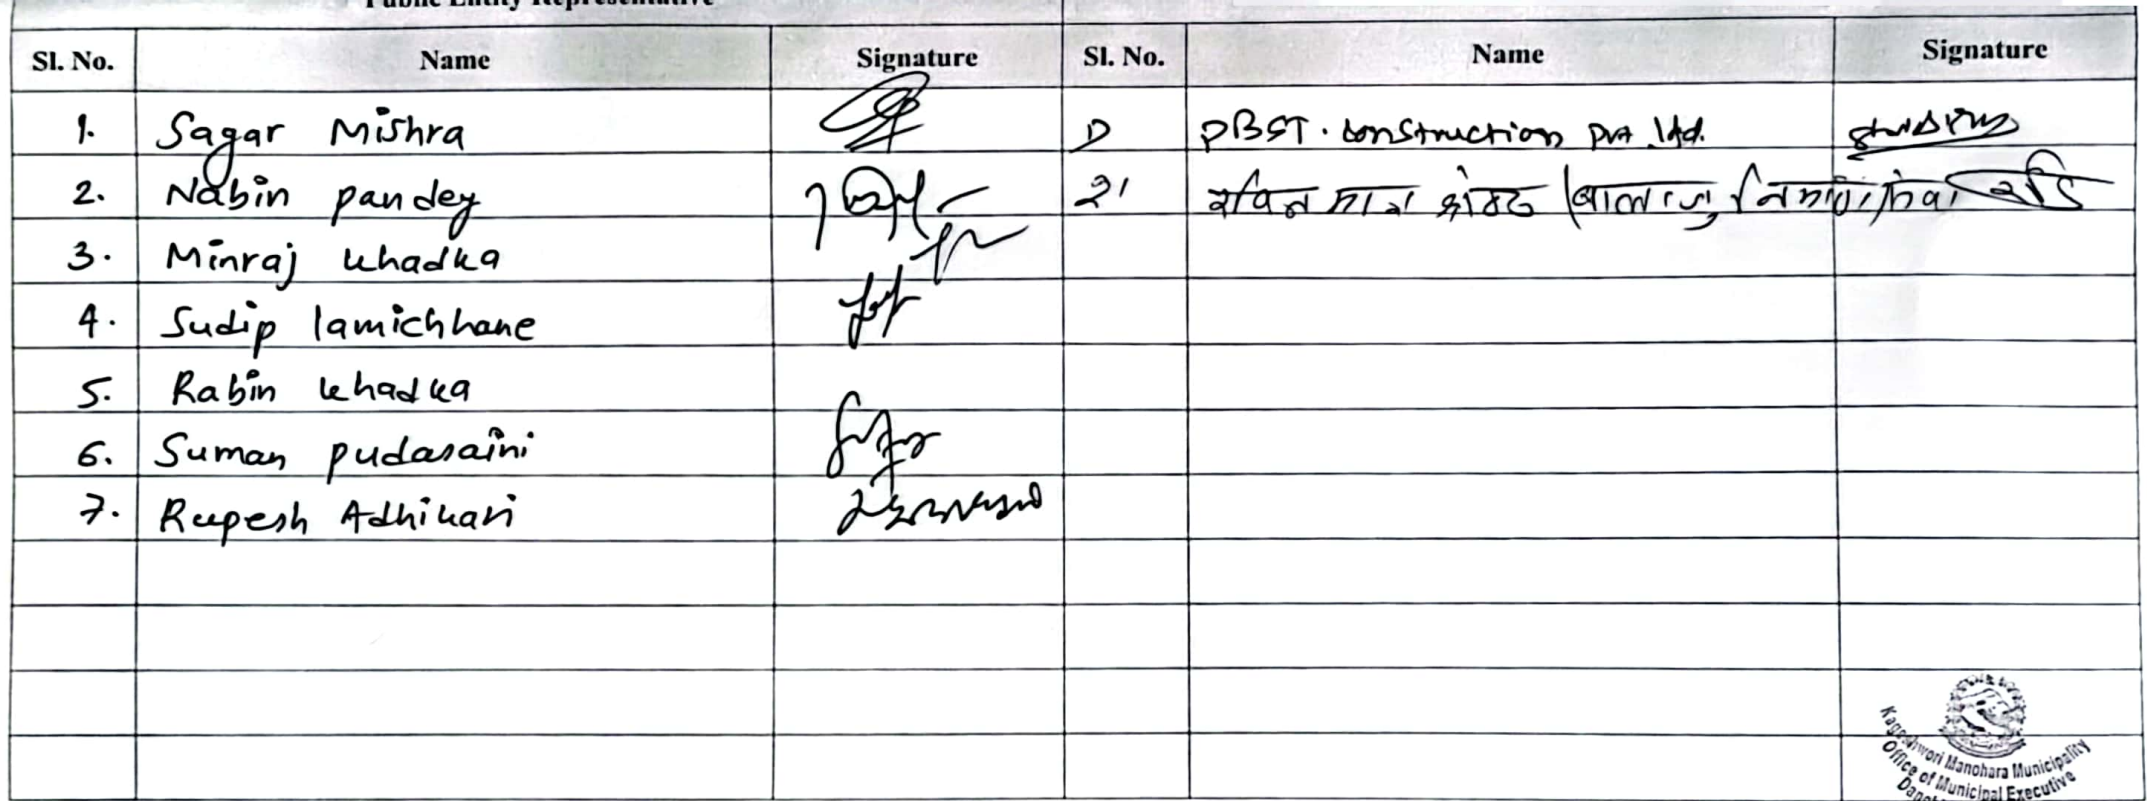 Public Entity Representative
Sl. No. Name Signature Sl. No. Name Signature
1. Sagar Mishra D PBST. Construction Pvt. Ltd.
2. Nabin pandey २।
3. Minraj khadka
4. Sudip lamichhane
5. Rabin khadka
6. Suman pudasaini
7. Rupesh Adhikari
Kageshwori Manohara Municipality
Office of Municipal Executive